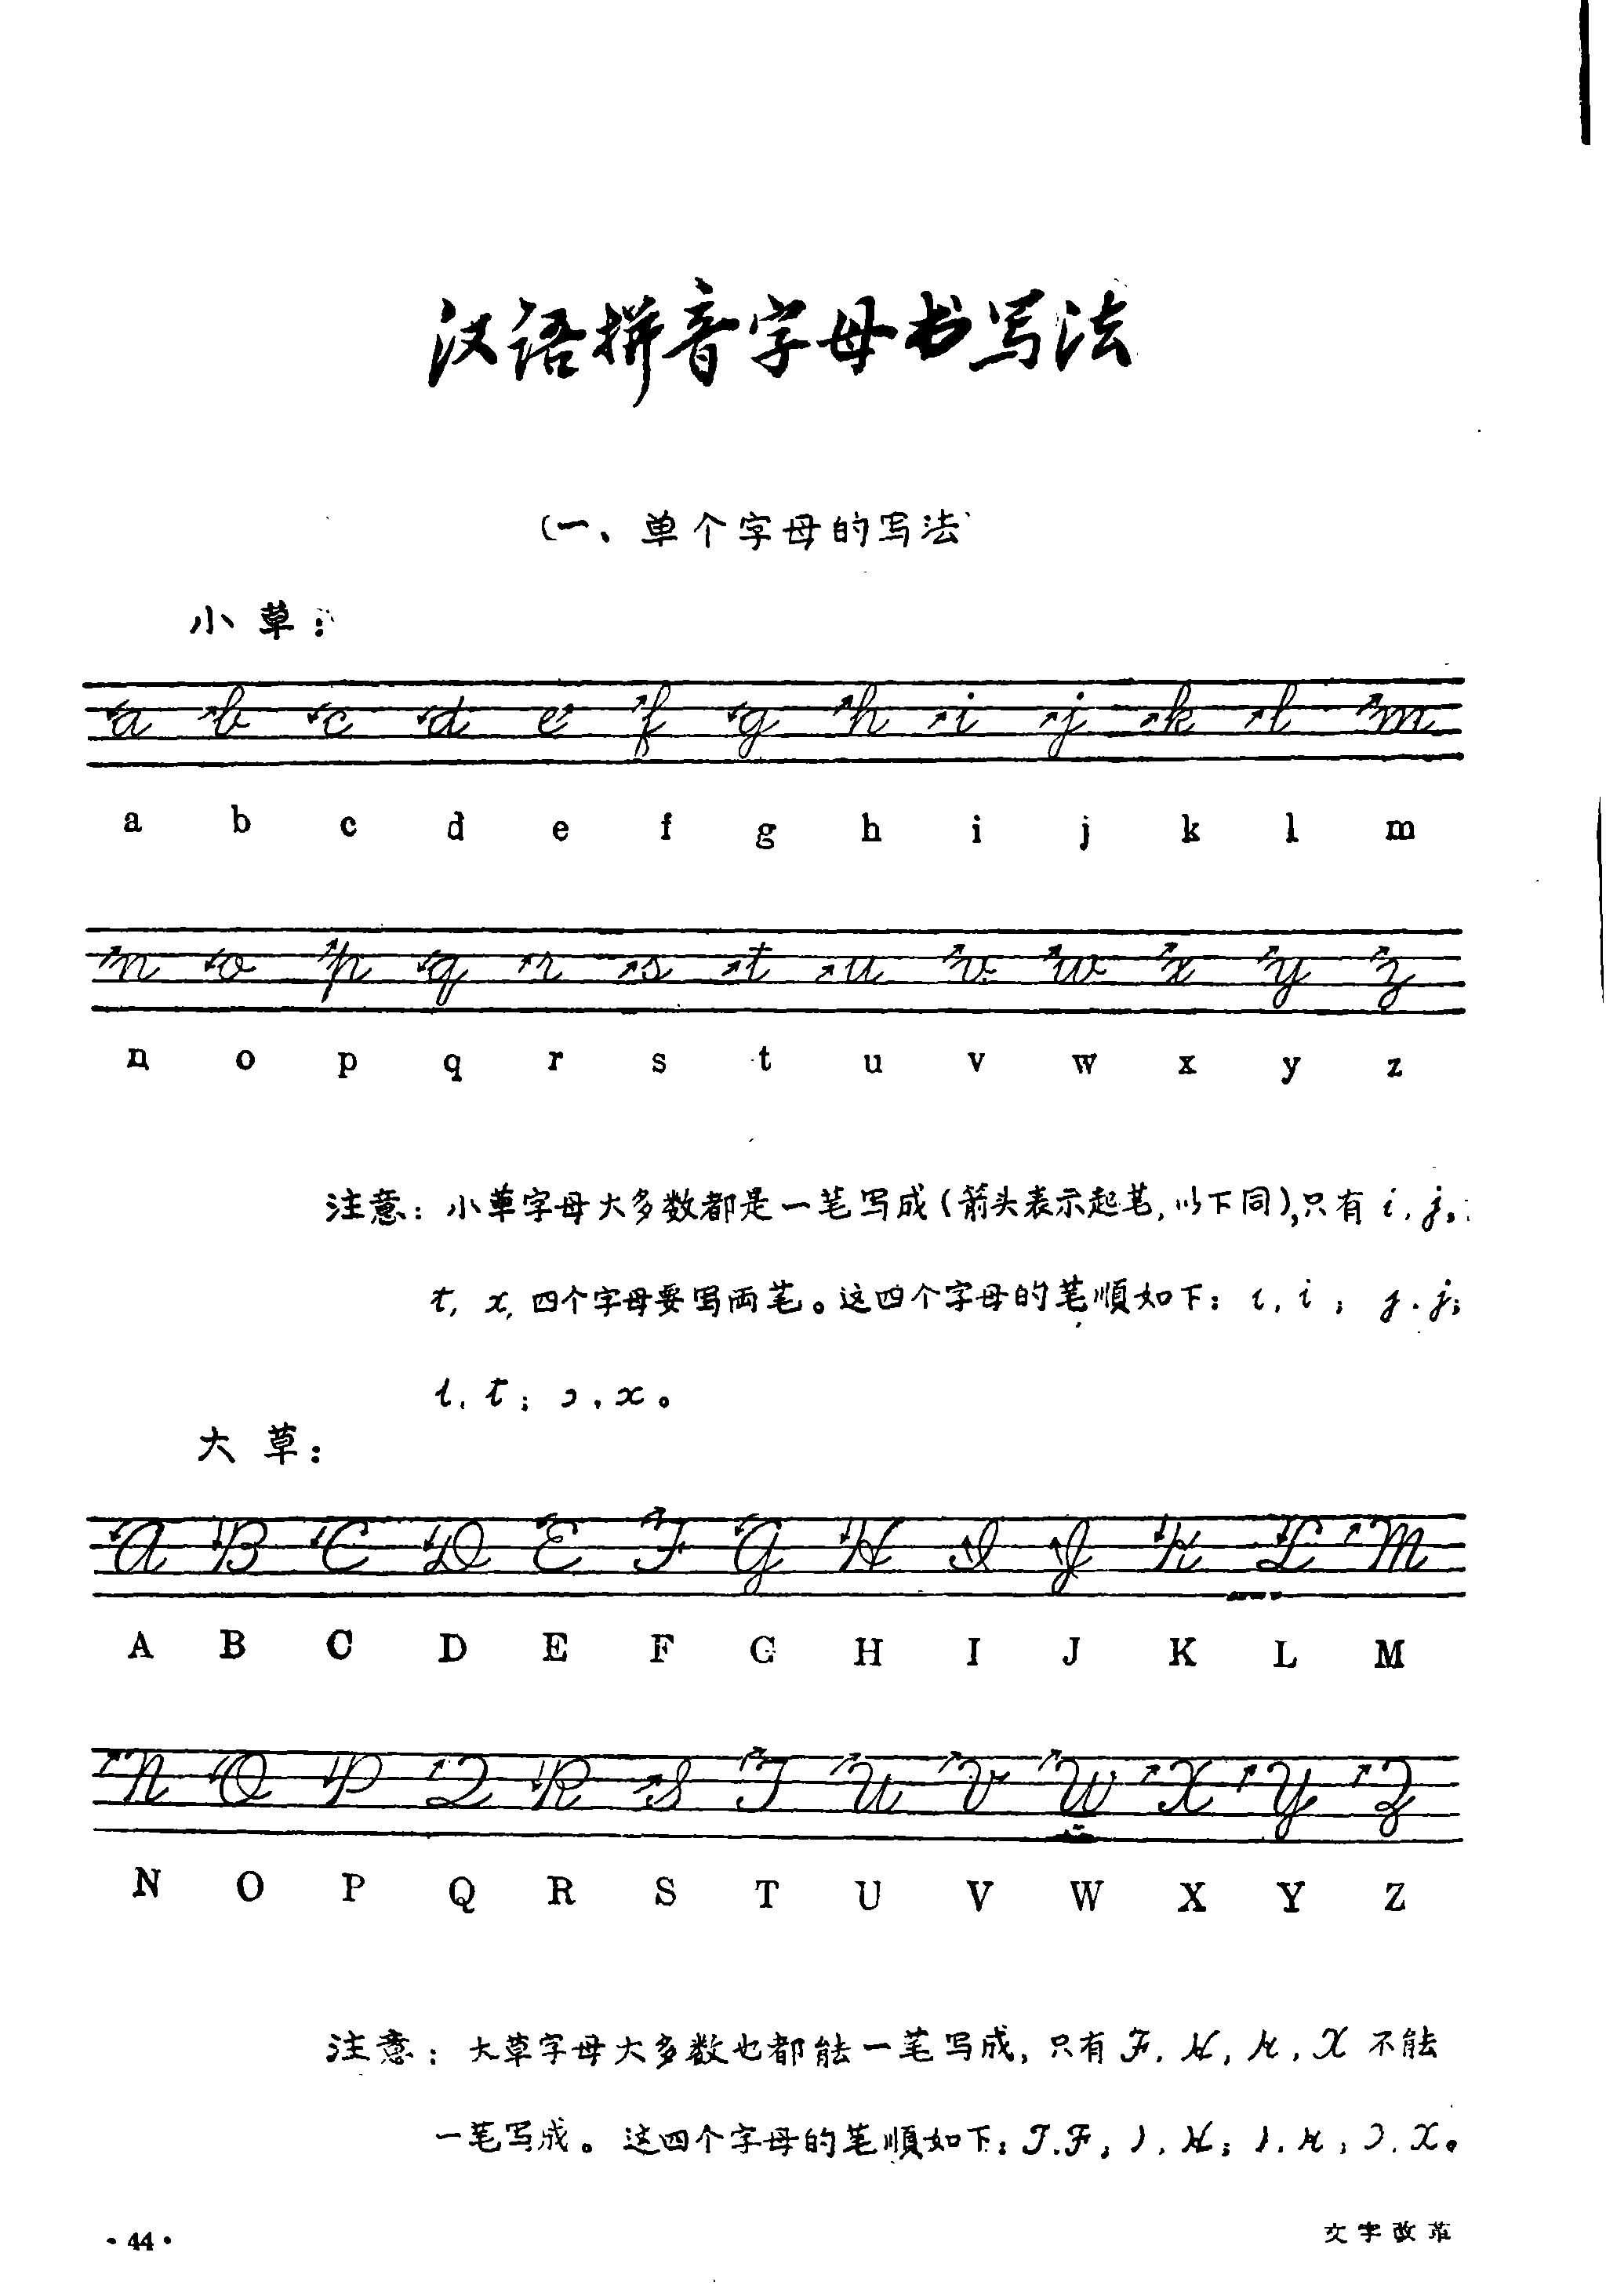 汉语拼音字母书写法
(一、单个字母的写法
小草：
a b c d e f g h i j k l m
a b c d e f g h i j k l m
n o p q r s t u v w x y z
n o p q r s t u v w x y z
注意：小草字母大多数都是一笔写成(箭头表示起笔,以下同),只有 i, j,
t, x, 四个字母要写両笔。这四个字母的笔順如下：ı, i; ȷ, j;
l, t; ɔ, x。
大草：
A B C D E F G H I J K L M
A B C D E F G H I J K L M
N O P Q R S T U V W X Y Z
N O P Q R S T U V W X Y Z
注意：大草字母大多数也都能一笔写成, 只有 F, H, K, X 不能
一笔写成。这四个字母的笔順如下：T, F; ), H; ), K; ɔ, X。
·44·
文字改革